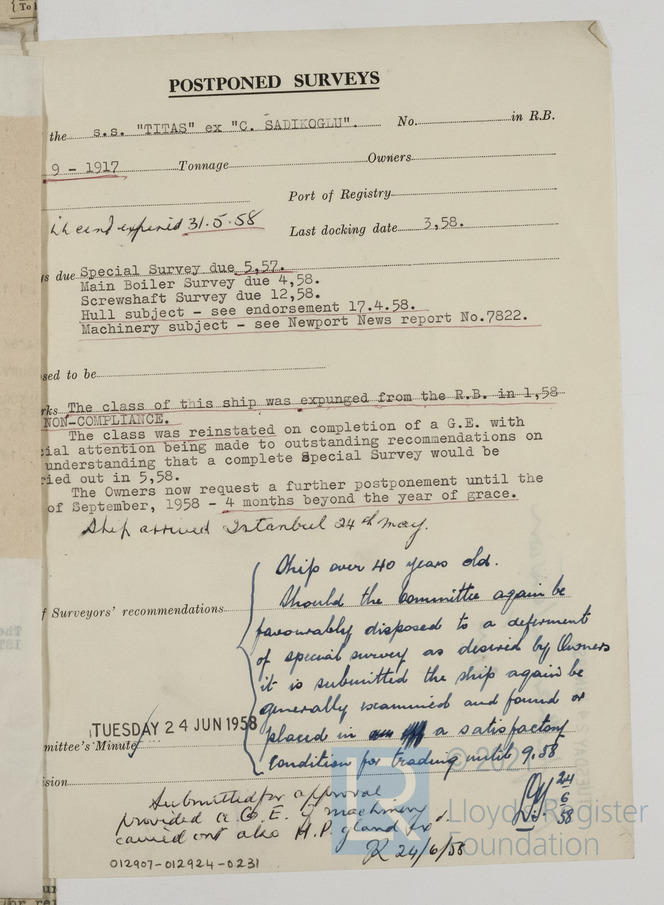 {To
POSTPONED SURVEYS
the s.s. "TITAS" ex "C. SADIKOGLU". No. in R.B.
9 - 1917 Tonnage Owners
Port of Registry
expired 31.5.58 Last docking date 3,58.
s due Special Survey due 5,57.
Main Boiler Survey due 4,58.
Screwshaft Survey due 12,58.
Hull subject - see endorsement 17.4.58.
Machinery subject - see Newport News report No.7822.
sed to be
rks The class of this ship was expunged from the R.B. in 1,58
NON-COMPLIANCE.
The class was reinstated on completion of a G.E. with
cial attention being made to outstanding recommendations on
understanding that a complete Special Survey would be
ried out in 5,58.
The Owners now request a further postponement until the
of September, 1958 - 4 months beyond the year of grace.
Ship arrived Istanbul 24th May.
Ship over 40 years old.
Should the Committee again be
f Surveyors' recommendations
favourably disposed to a deferment
of special survey as desired by Owners
it is submitted the ship again be
generally examined and found or
placed in a satisfactory
condition for trading until 9.58
TUESDAY 24 JUN 1958
mmittee's Minute
ision
24
6
58
Submitted for approval
provided a G.E. of machinery
carried out also H.P. gland
24/6/58
012907-012924-0231
© 202
LR
Lloyd's Register
Foundation